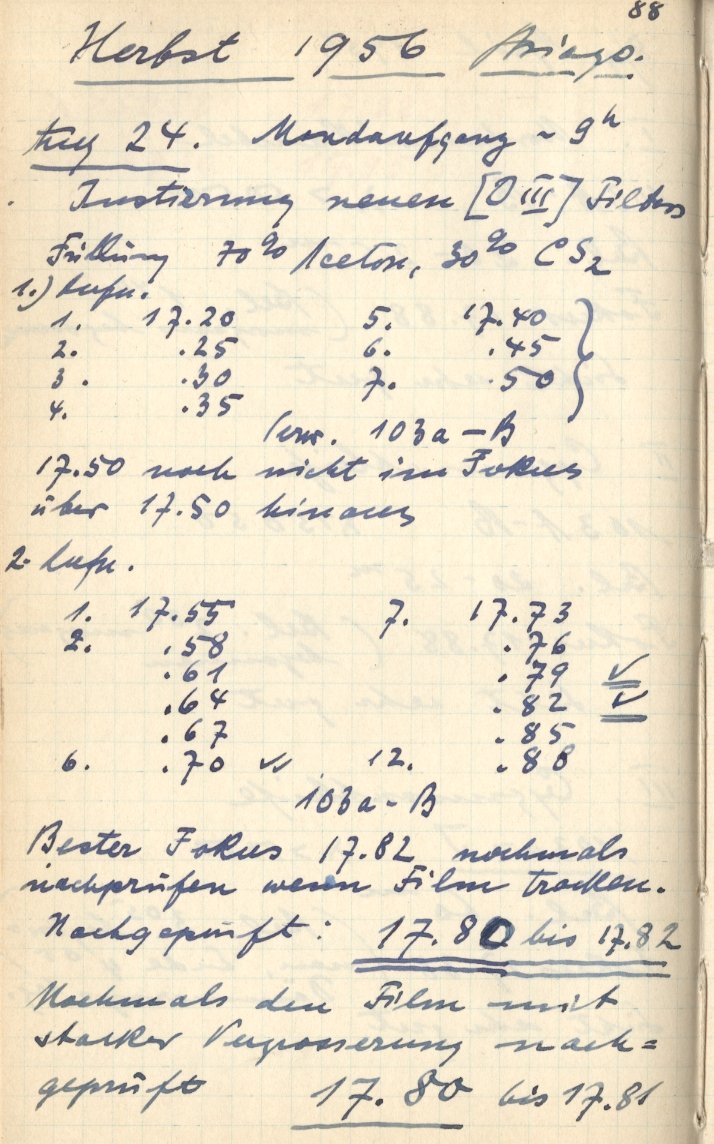 88
Herbst 1956 Asiago.
Aug 24. Mondaufgang ~ 9h
Justierung neuen [O III] Filters
Füllung 70% Aceton, 30% CS2
1.) Aufn.
1. 17.20 5. 17.40
2. .25 6. .45
3. .30 7. .50
4. .35
103a-B
17.50 noch nicht im Fokus
über 17.50 hinaus
2. Aufn.
1. 17.55 7. 17.73
2. .58 .76
.61 .79 ✓
.64 .82 ✓
.67 .85
6. .70 ✓ 12. .88
103a-B
Bester Fokus 17.82 nochmals
nachprüfen wenn Film trocken.
Nachgeprüft: 17.80 bis 17.82
Nochmals den Film mit
starker Vergrosserung nach=
geprüft 17.80 bis 17.81